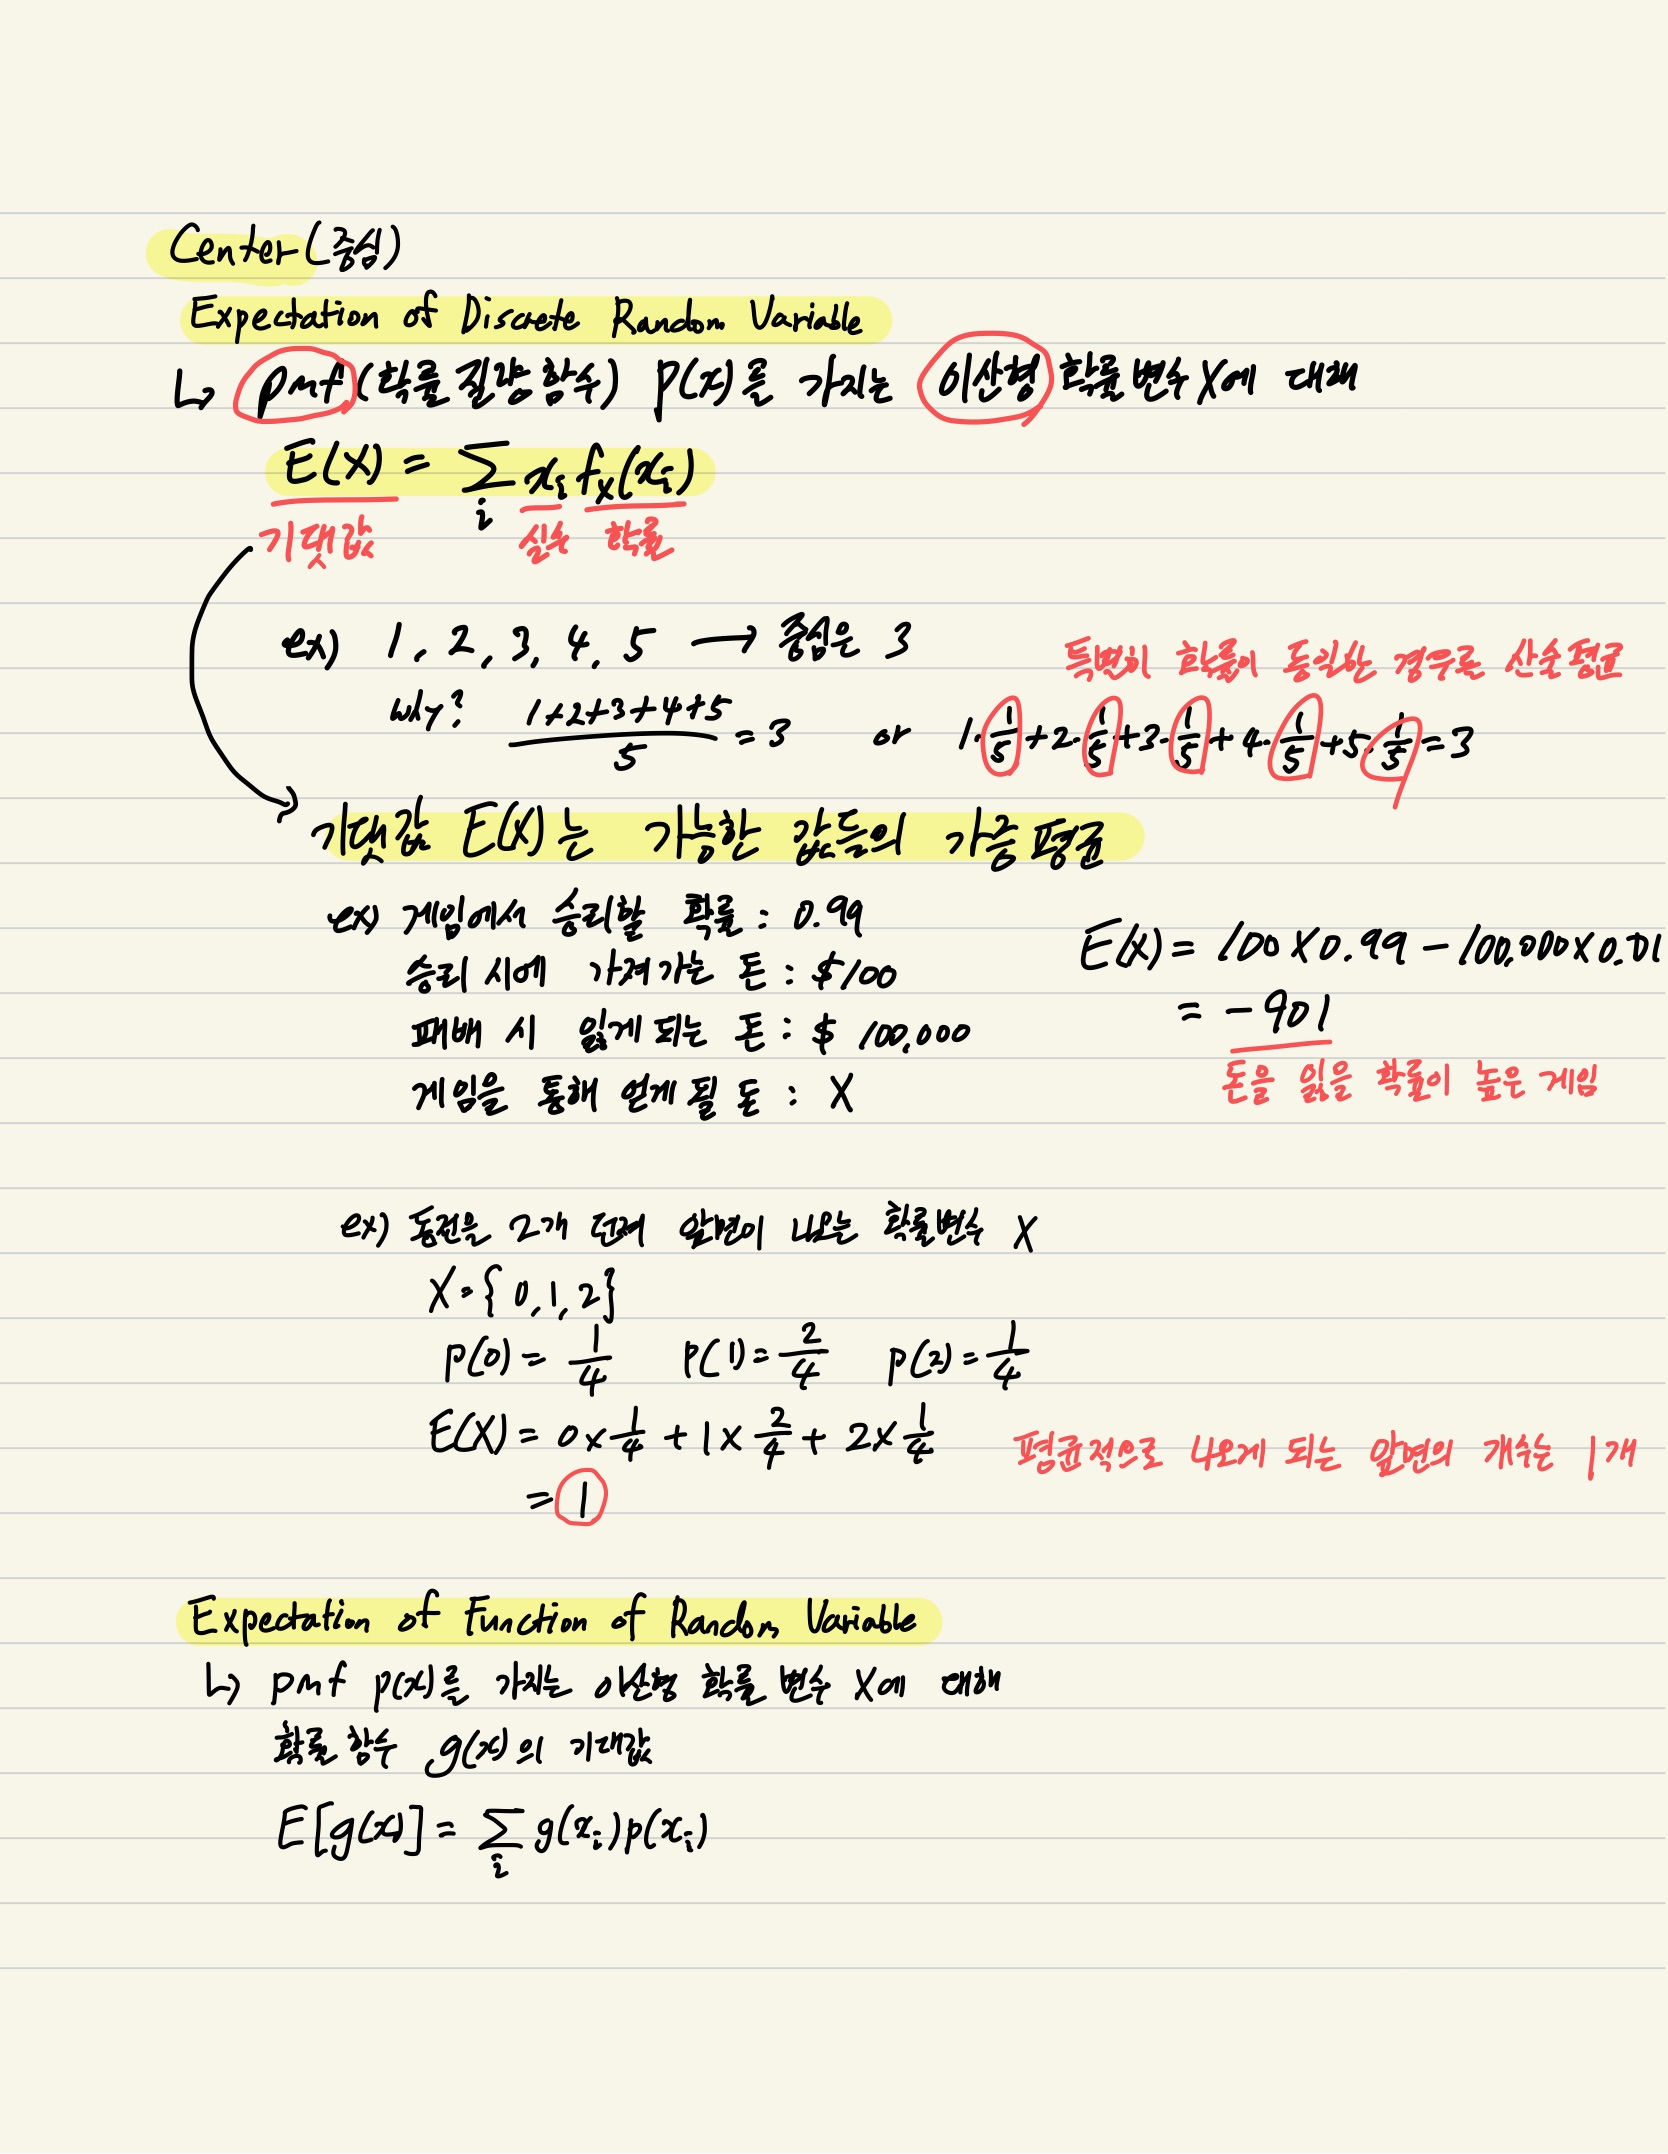 Center (중심)
Expectation of Discrete Random Variable
↳ pmf (확률 질량 함수) p(x)를 가지는 이산형 확률 변수 X에 대해
E(X) = ∑ᵢ xᵢ fₓ(xᵢ)
기댓값 실수 확률
ex) 1, 2, 3, 4, 5 → 중심은 3
특별히 확률이 동일한 경우를 산술평균
why? (1+2+3+4+5)/5 = 3 or 1·1/5+2·1/5+3·1/5+4·1/5+5·1/5=3
기댓값 E(X)는 가능한 값들의 가중 평균
ex) 게임에서 승리할 확률 : 0.99
승리 시에 가져가는 돈 : $100
패배 시 잃게 되는 돈 : $ 100,000
게임을 통해 얻게 될 돈 : X
E(X) = 100 X 0.99 - 100,000 X 0.01
= -901
돈을 잃을 확률이 높은 게임
ex) 동전을 2개 던져 앞면이 나오는 확률변수 X
X = { 0, 1, 2 }
p(0) = 1/4 p(1) = 2/4 p(2) = 1/4
E(X) = 0 × 1/4 + 1 × 2/4 + 2 × 1/4
= 1
평균적으로 나오게 되는 앞면의 개수는 1개
Expectation of Function of Random Variable
↳ pmf p(x)를 가지는 이산형 확률 변수 X에 대해
확률 함수 g(x)의 기대값
E[g(x)] = ∑ᵢ g(xᵢ)p(xᵢ)